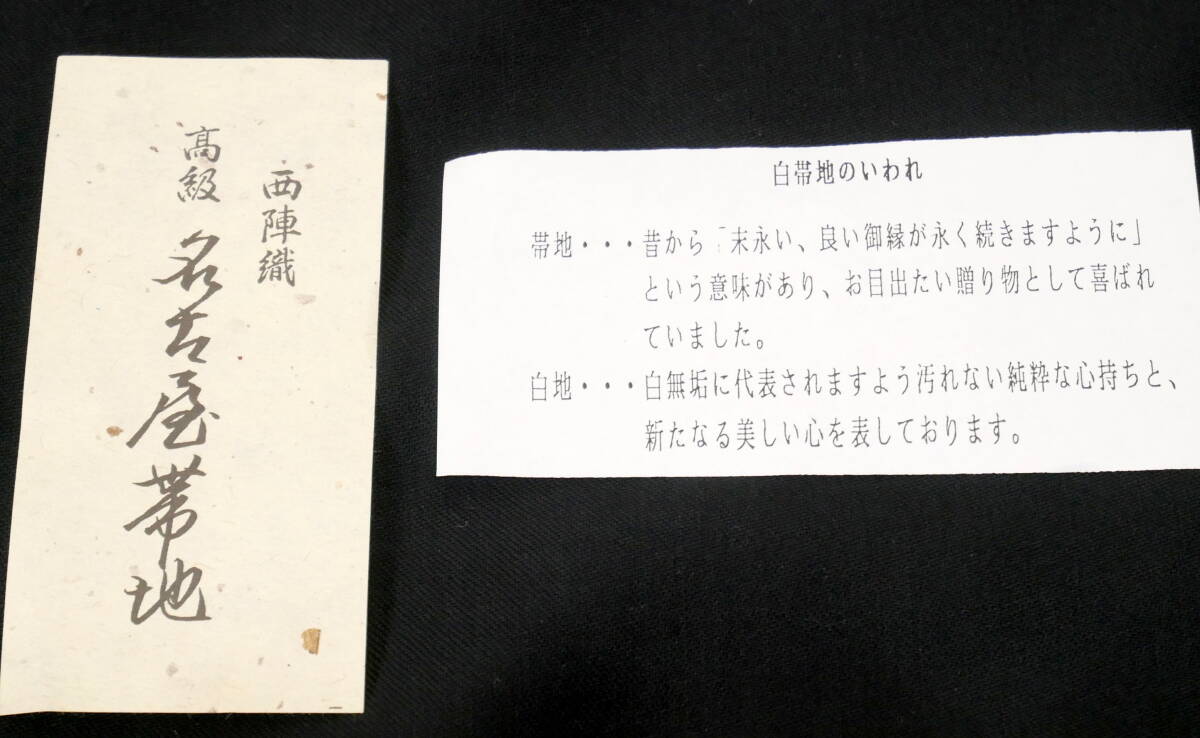 西陣織
高級 名古屋帯地
白帯地のいわれ
帯地・・・昔から「末永い、良い御縁が永く続きますように」
という意味があり、お目出たい贈り物として喜ばれ
ていました。
白地・・・白無垢に代表されますよう汚れない純粋な心持ちと、
新たなる美しい心を表しております。